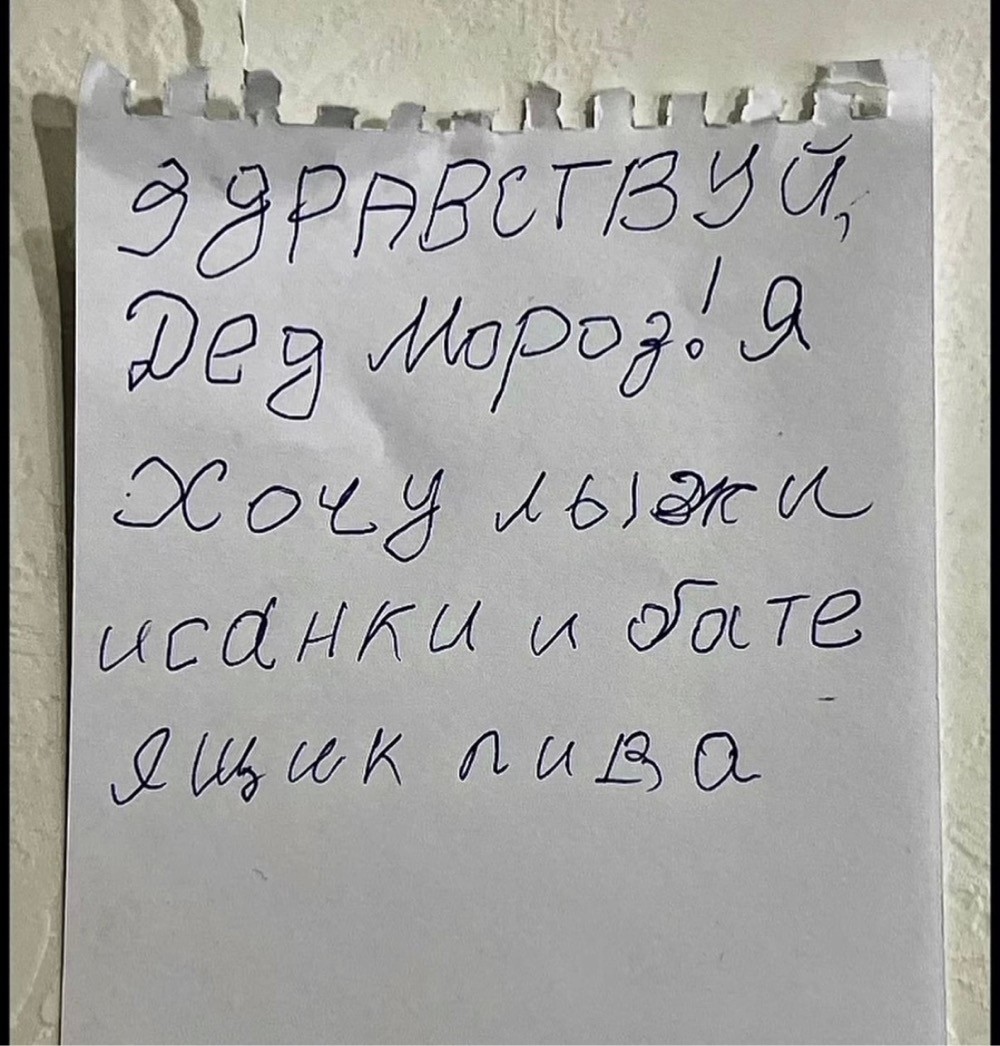 ЗДРАВСТВУЙ,
Дед Мороз! Я
Хочу лыжи
исанки и бате
ящик пива